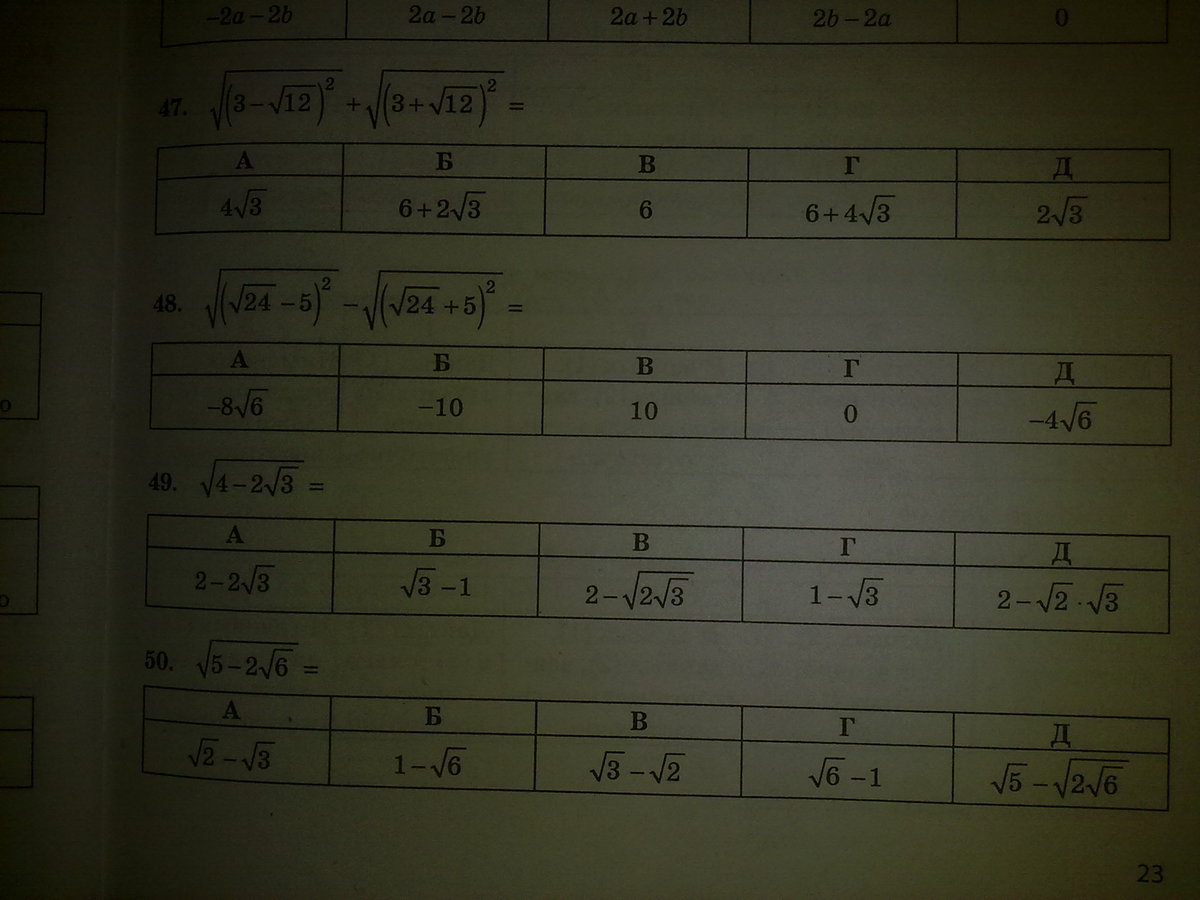 −2a − 2b 2a − 2b 2a + 2b 2b − 2a 0
47. √(3 − √12)² + √(3 + √12)² =
А Б В Г Д
4√3 6 + 2√3 6 6 + 4√3 2√3
48. √(√24 − 5)² − √(√24 + 5)² =
А Б В Г Д
−8√6 −10 10 0 −4√6
49. √(4 − 2√3) =
А Б В Г Д
2 − 2√3 √3 − 1 2 − √(2√3) 1 − √3 2 − √2 · √3
50. √(5 − 2√6) =
А Б В Г Д
√2 − √3 1 − √6 √3 − √2 √6 − 1 √5 − √(2√6)
23